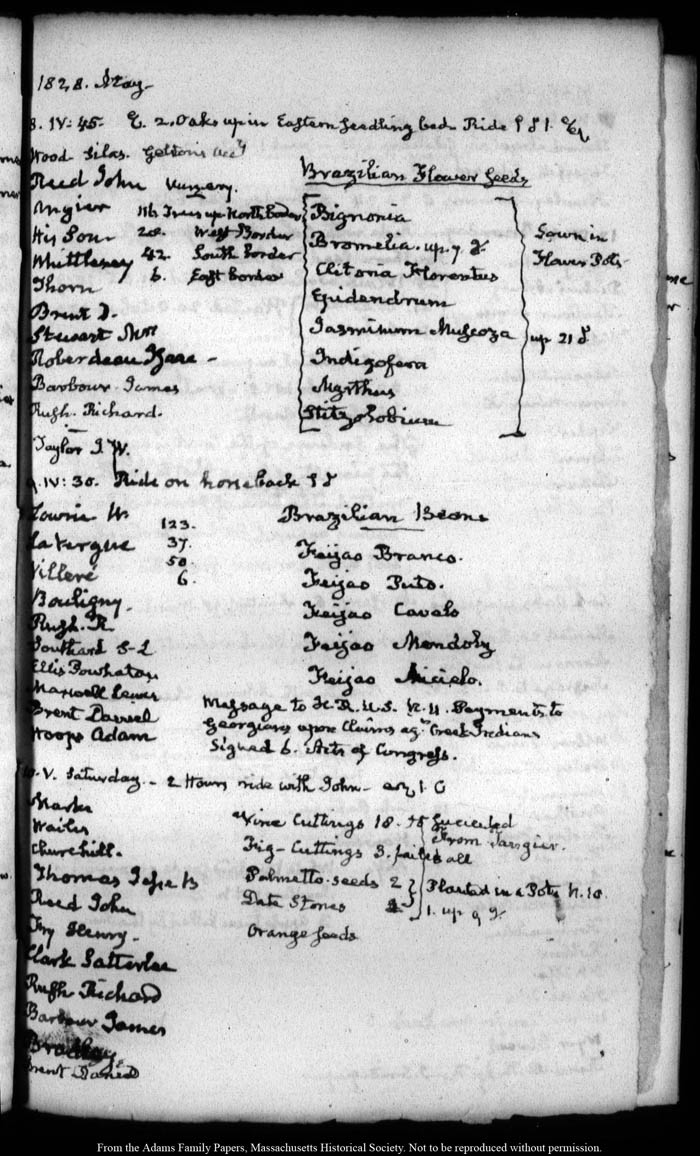 1828. May.
8. IV: 45. E. 2. Oaks up in Eastern Seedling bed. Ride
Wood Silas.
Reed John Nursery.
Brazilian Flower Seeds
Angier 116 Trees up North Border Bignonia
His Son 20. West Border Bromelia. up. 7 Sown in
Whittlesey 42. South Border Clitoria Florentus Flower Pots
Thorn 6. East border Epidendrum
Brent D.
Stewart Jasminum Muscoza up 21
Roberdeau Isaac - Indigofera
Barbour. James Myrthus
Rush. Richard. Stitzolobium
Taylor J W.
9. IV: 30. Ride on horseback
Lowrie W. 123. Brazilian Beans
Lavergne 37. Feijao Branco.
Villeré 50 Feijao Puto.
6.
Bouligny. Feijao Cavalo
Rush. R. Feijao
Southard S-L
Ellis Powhatan Feijao
Maxwell Lewis
Brent Daniel Message to H. R. U.S. N. 11. Payments to
Hoops Adam Georgians upon Claims agst Creek Indians
Signed 6. Acts of Congress.
10. V. Saturday - 2 Hours ride with John -
Marks
Wailes Vine Cuttings 18. 15 succeeded
Churchill. Fig- Cuttings 3. failed all From Tangier.
Thomas Jesse B Palmetto. seeds 2 Planted in Pots N. 10.
Reed John Date Stones 1. up 9
Fry Henry - Orange seeds
Clark Satterlee
Rush Richard
Barbour James
Bradley
Brent Daniel
From the Adams Family Papers, Massachusetts Historical Society. Not to be reproduced without permission.